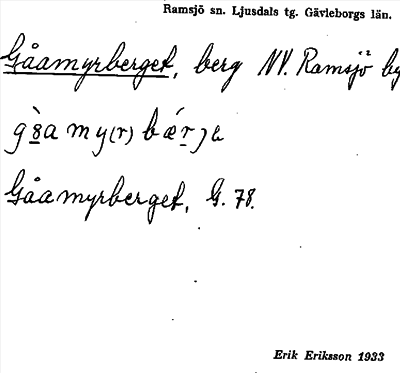 Ramsjö sn. Ljusdals tg. Gävleborgs län.
Gåamyrberget, berg NV. Ramsjö by
Gåamyrberget, G. 78.
Erik Eriksson 1933